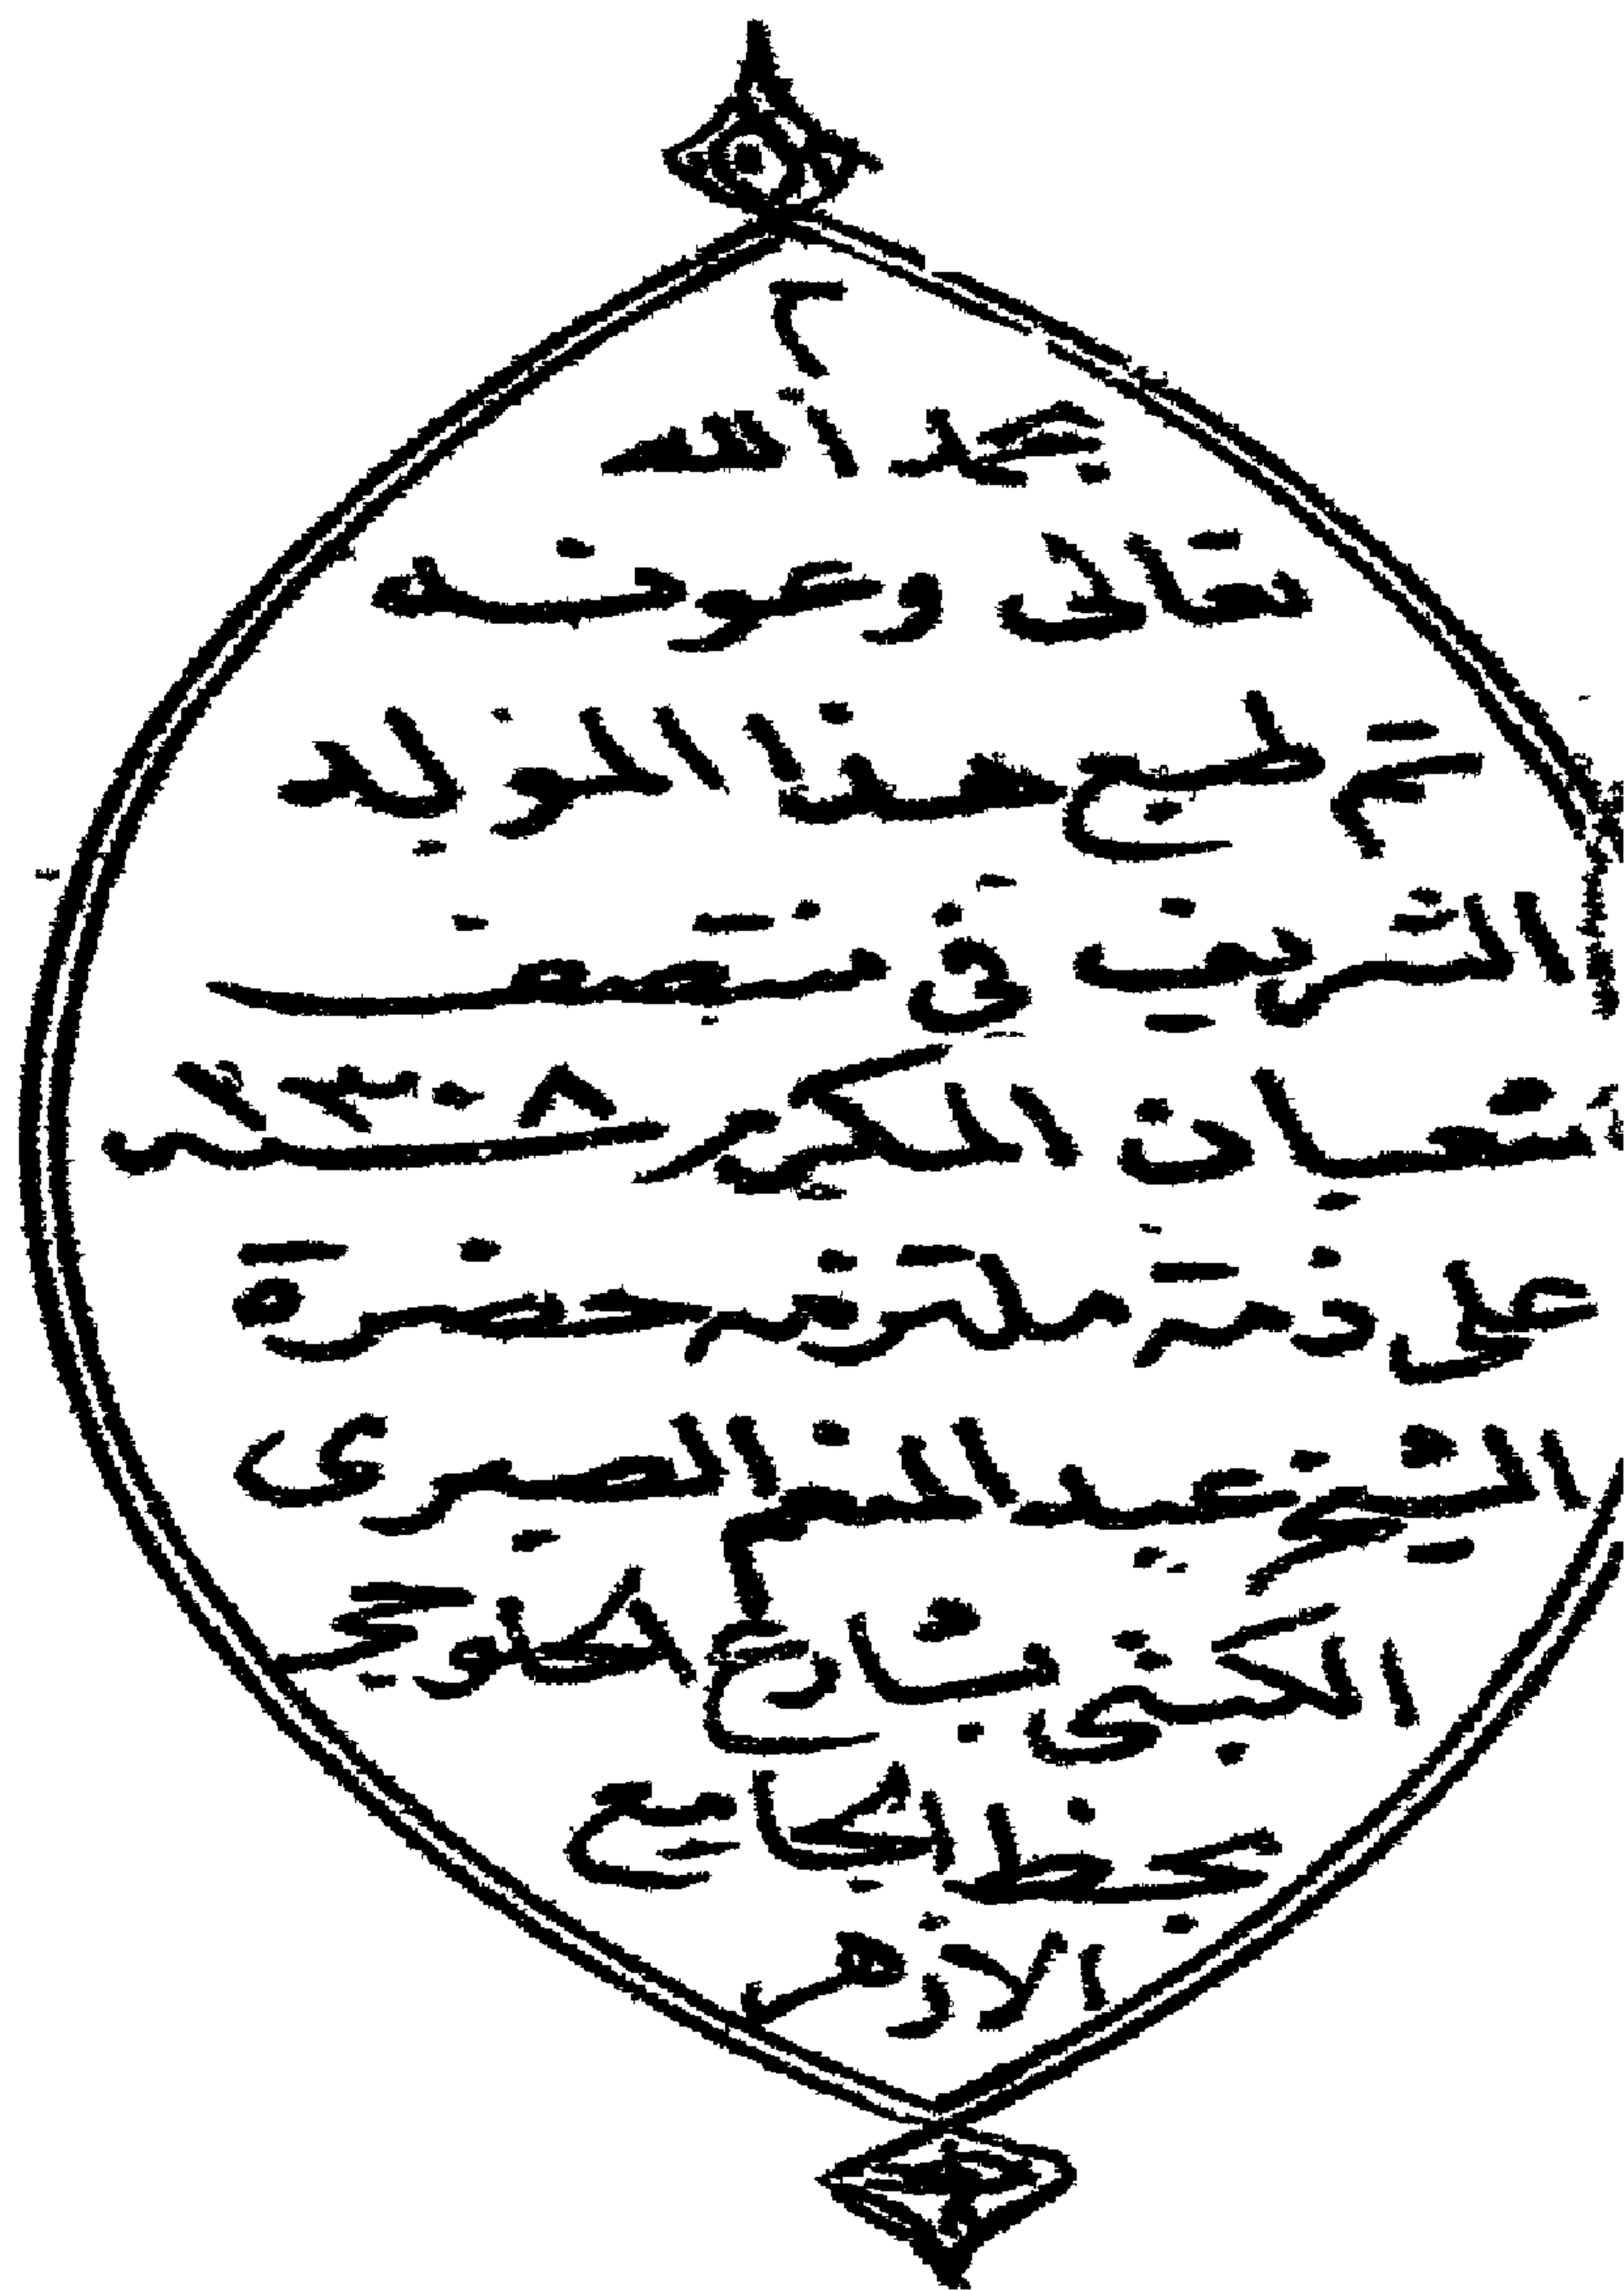 م
بحمد الله
تعالى وعونه
تم طبع هذا المولد
الشريف في منتصف
شعبان المكرم سنة ١٣٠٨
على ذمة ملتزمه حضرة
الشيخ عبد المنعم المصرى
الكتبى بشارع الحلوجى
بخط الجامع
الازهر